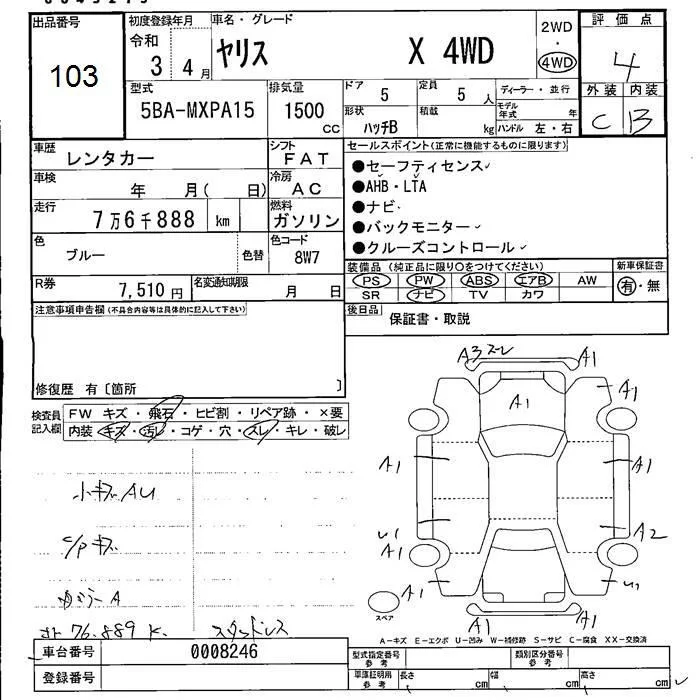 出品番号
103
初度登録年月
令和
3年4月
車名・グレード
ヤリス X 4WD
2WD
・
4WD
評価点
4
外装 内装
C B
型式
5BA-MXPA15
排気量
1500
CC
ドア
5
定員
5人
形状
ハッチB
積載
kg
ディーラー・並行
モデル年式 年
ハンドル 左・右
車歴
レンタカー
シフト
FAT
車検
年 月( 日)
冷房
AC
走行
7万6千888 km
燃料
ガソリン
色
ブルー
色替
色コード
8W7
R券
7,510円
名変通知期限
月 日
セールスポイント(正常に機能するものに限ります)
●セーフティセンス
●AHB・LTA
●ナビ
●バックモニター
●クルーズコントロール
装備品 (純正品に限り○をつけてください)
PS PW ABS エアB AW
SR ナビ TV カワ
新車保証書
有・無
後日品
保証書・取説
注意事項申告欄(不具合内容等は具体的に記入して下さい)
修復歴 有〔箇所 〕
検査員記入欄
FW キズ・飛石・ヒビ割・リペア跡・×要
内装・キズ・汚レ・コゲ・穴・スレ・キレ・破レ
小キズAU
C/Pキズ
A
76.889K.
スタッドレス
A3スレ
A1
A1
A1
A1
A1
A1
A2
A1
A1
A1
A1
スペア
A-キズ E-エクボ U-凹み W-補修跡 S-サビ C-腐食 XX-交換済
車台番号
0008246
登録番号
型式指定番号
参考
類別区分番号
参考
車庫証明用
参考
長さ cm
幅 cm
高さ cm